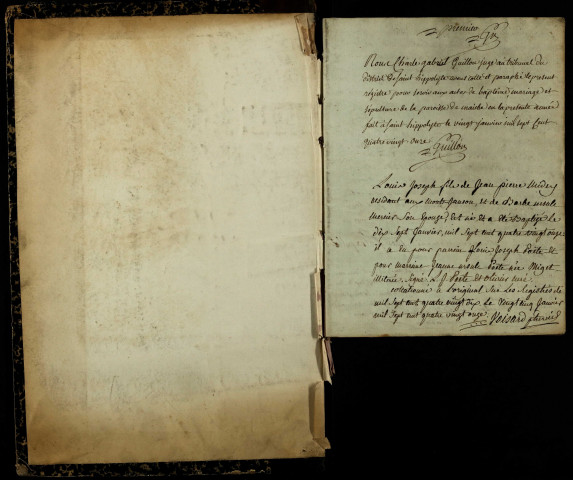 premier
Nous Charle gabriel Guillon juge au tribunal du
district de saint hippolyte avons cotté et paraphé le present
registre pour servir aux actes de baptême, mariage et
sepulture de la paroisse de maiche en la presente année
fait à saint hippolyte le vingt janvier mil sept cent
quatre vingt onze
Guillon
Louis Joseph fils de Jean pierre
residant aux et de Barbe ursule
mercier son epouse est né et a été Baptizé le
dix Sept Janvier mil Sept cent quatre vingt onze
il a eu pour parrein Louis Joseph Poete et
pour marreine Jeanne ursule Poete née Miget
illiterée. Signé L. J. Poete et vicaire
collationné à l'original sur les Registres de
mil Sept cent quatre vingt dix Le Vingt cinq Janvier
mil Sept cent quatre vingt onze. Voisard